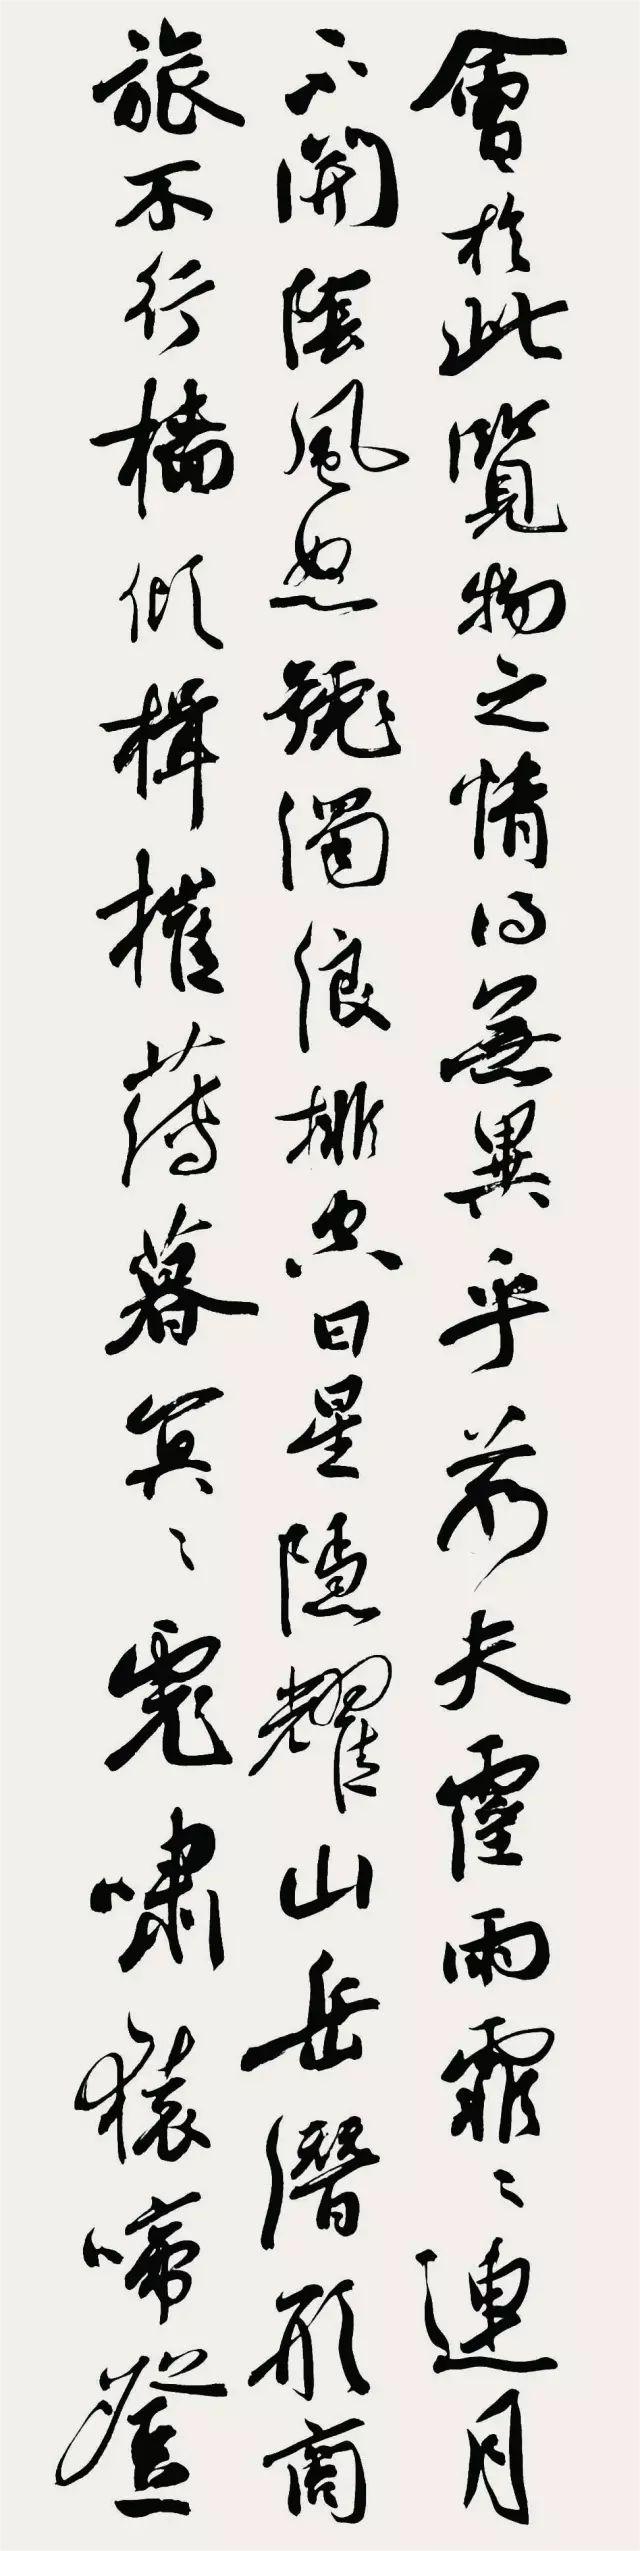 會於此覽物之情得無異乎若夫霪雨霏〻連月
不開陰風怒號濁浪排空日星隱耀山岳潛形商
旅不行檣傾楫摧薄暮冥〻虎嘯猿啼登